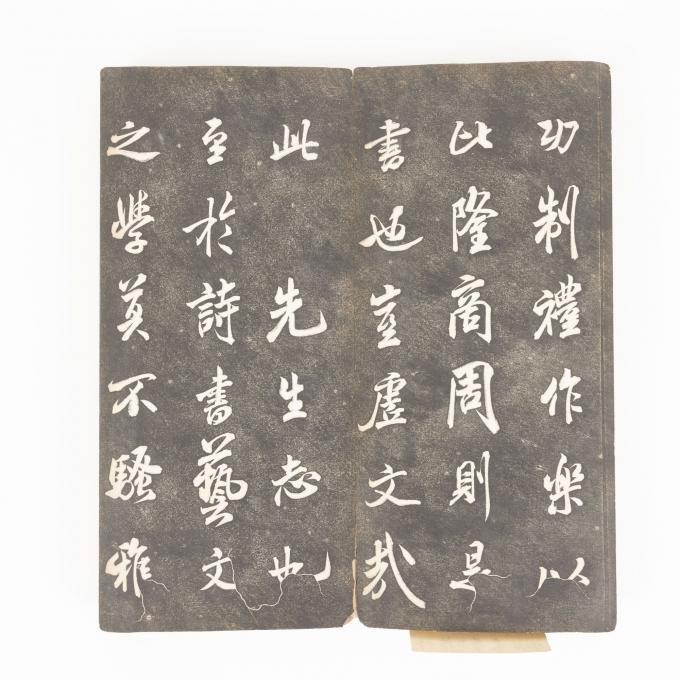 功制禮作樂以
比隆商周則是
書也豈虛文哉
此 先生志也
至於詩書藝文
之學莫不騷雅